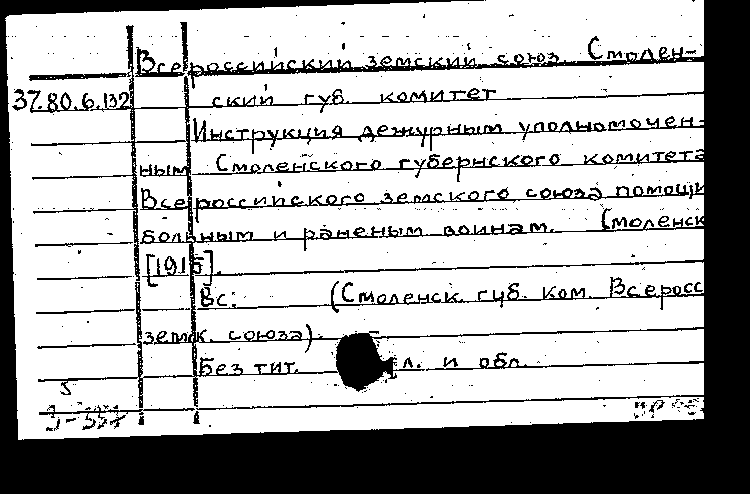 Всероссийский земский союз. Смолен-
37.80.6.132 ский губ. комитет
Инструкция дежурным уполномочен-
ным Смоленского губернского комитета
Всероссийского земского союза помощи
больным и раненым воинам. Смоленск
[1915].
Вс: (Смоленск. губ. ком. Всеросс
земск. союза).
Без тит. л. и обл.
5